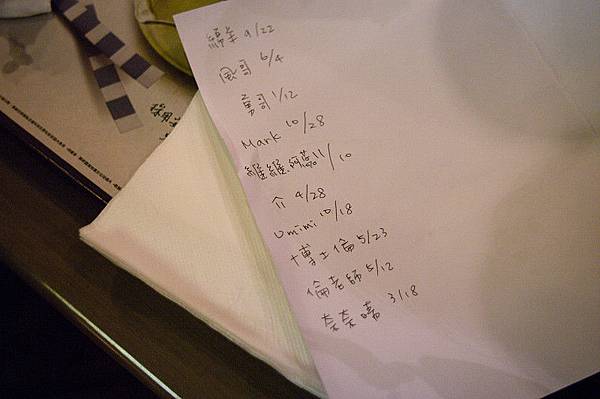 綿羊 9/22
風哥 6/4
勇司 1/12
Mark 10/28
維維 11/10
介 4/28
umimi 10/18
博士倫 5/23
倫老師 5/12
奈奈 3/18
採用